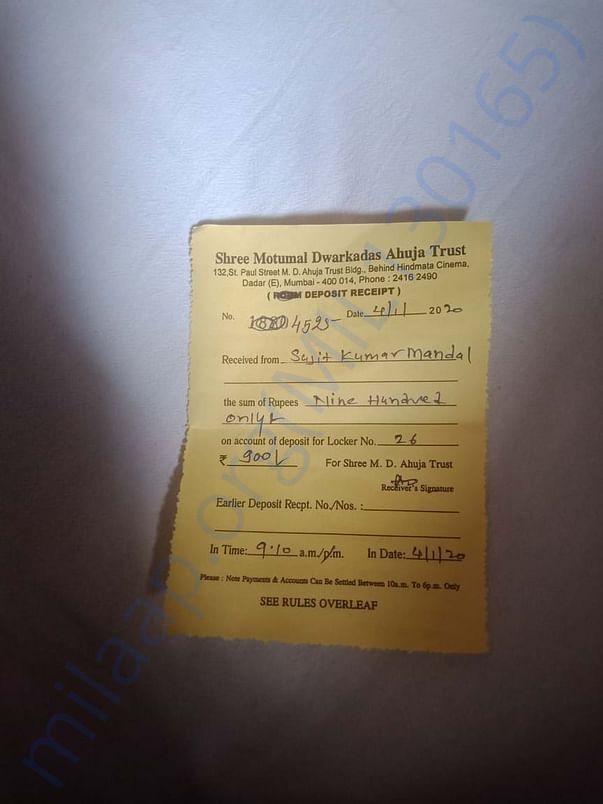 Shree Motumal Dwarkadas Ahuja Trust
132,St. Paul Street M. D. Ahuja Trust Bldg., Behind Hindmata Cinema,
Dadar (E), Mumbai - 400 014, Phone : 2416 2490
( ROOM DEPOSIT RECEIPT )
No. 1880 4525- Date 4/1/ 2020
Received from Sujit Kumar Mandal
the sum of Rupees Nine Hundred
only
on account of deposit for Locker No. 26
₹ 900/ For Shree M. D. Ahuja Trust
Receiver's Signature
Earlier Deposit Recpt. No./Nos. :
In Time: 9.10 a.m./p.m. In Date: 4/1/20
Please : Note Payments & Accounts Can Be Settled Between 10a.m. To 6p.m. Only
SEE RULES OVERLEAF